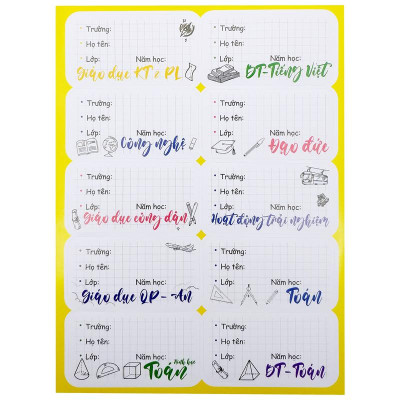 Trường:
Họ tên:
Lớp: Năm học:
Giáo dục KT & PL
Trường:
Họ tên:
Lớp: Năm học:
BT-Tiếng Việt
Trường:
Họ tên:
Lớp: Năm học:
Công nghệ
Trường:
Họ tên:
Lớp: Năm học:
Đạo đức
Trường:
Họ tên:
Lớp: Năm học:
Giáo dục công dân
Trường:
Họ tên:
Lớp: Năm học:
Hoạt động trải nghiệm
Trường:
Họ tên:
Lớp: Năm học:
Giáo dục QP-An
Trường:
Họ tên:
Lớp: Năm học:
Toán
Trường:
Họ tên:
Lớp: Năm học:
Toán Hình học
Trường:
Họ tên:
Lớp: Năm học:
BT-Toán